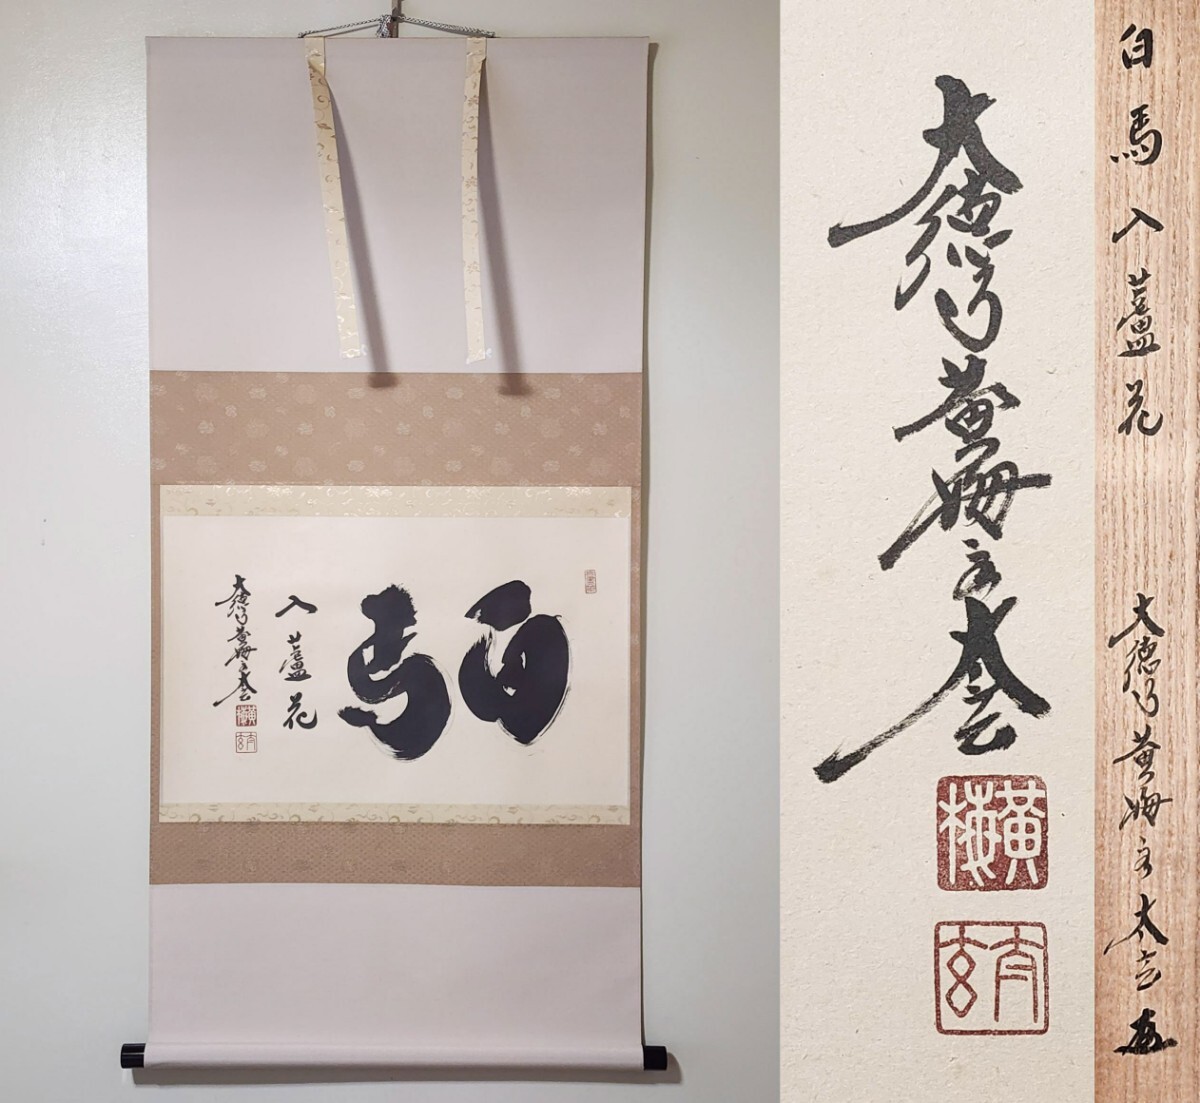 白馬
入蘆花
大徳寺黄梅主太玄
黄梅
太玄
大徳寺黄梅主太玄
黄梅
太玄
白馬入蘆花
大徳寺黄梅主太玄